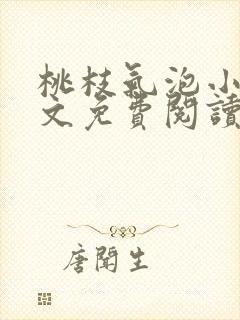 桃枝氣泡小
文免費閱讀
唐聞生